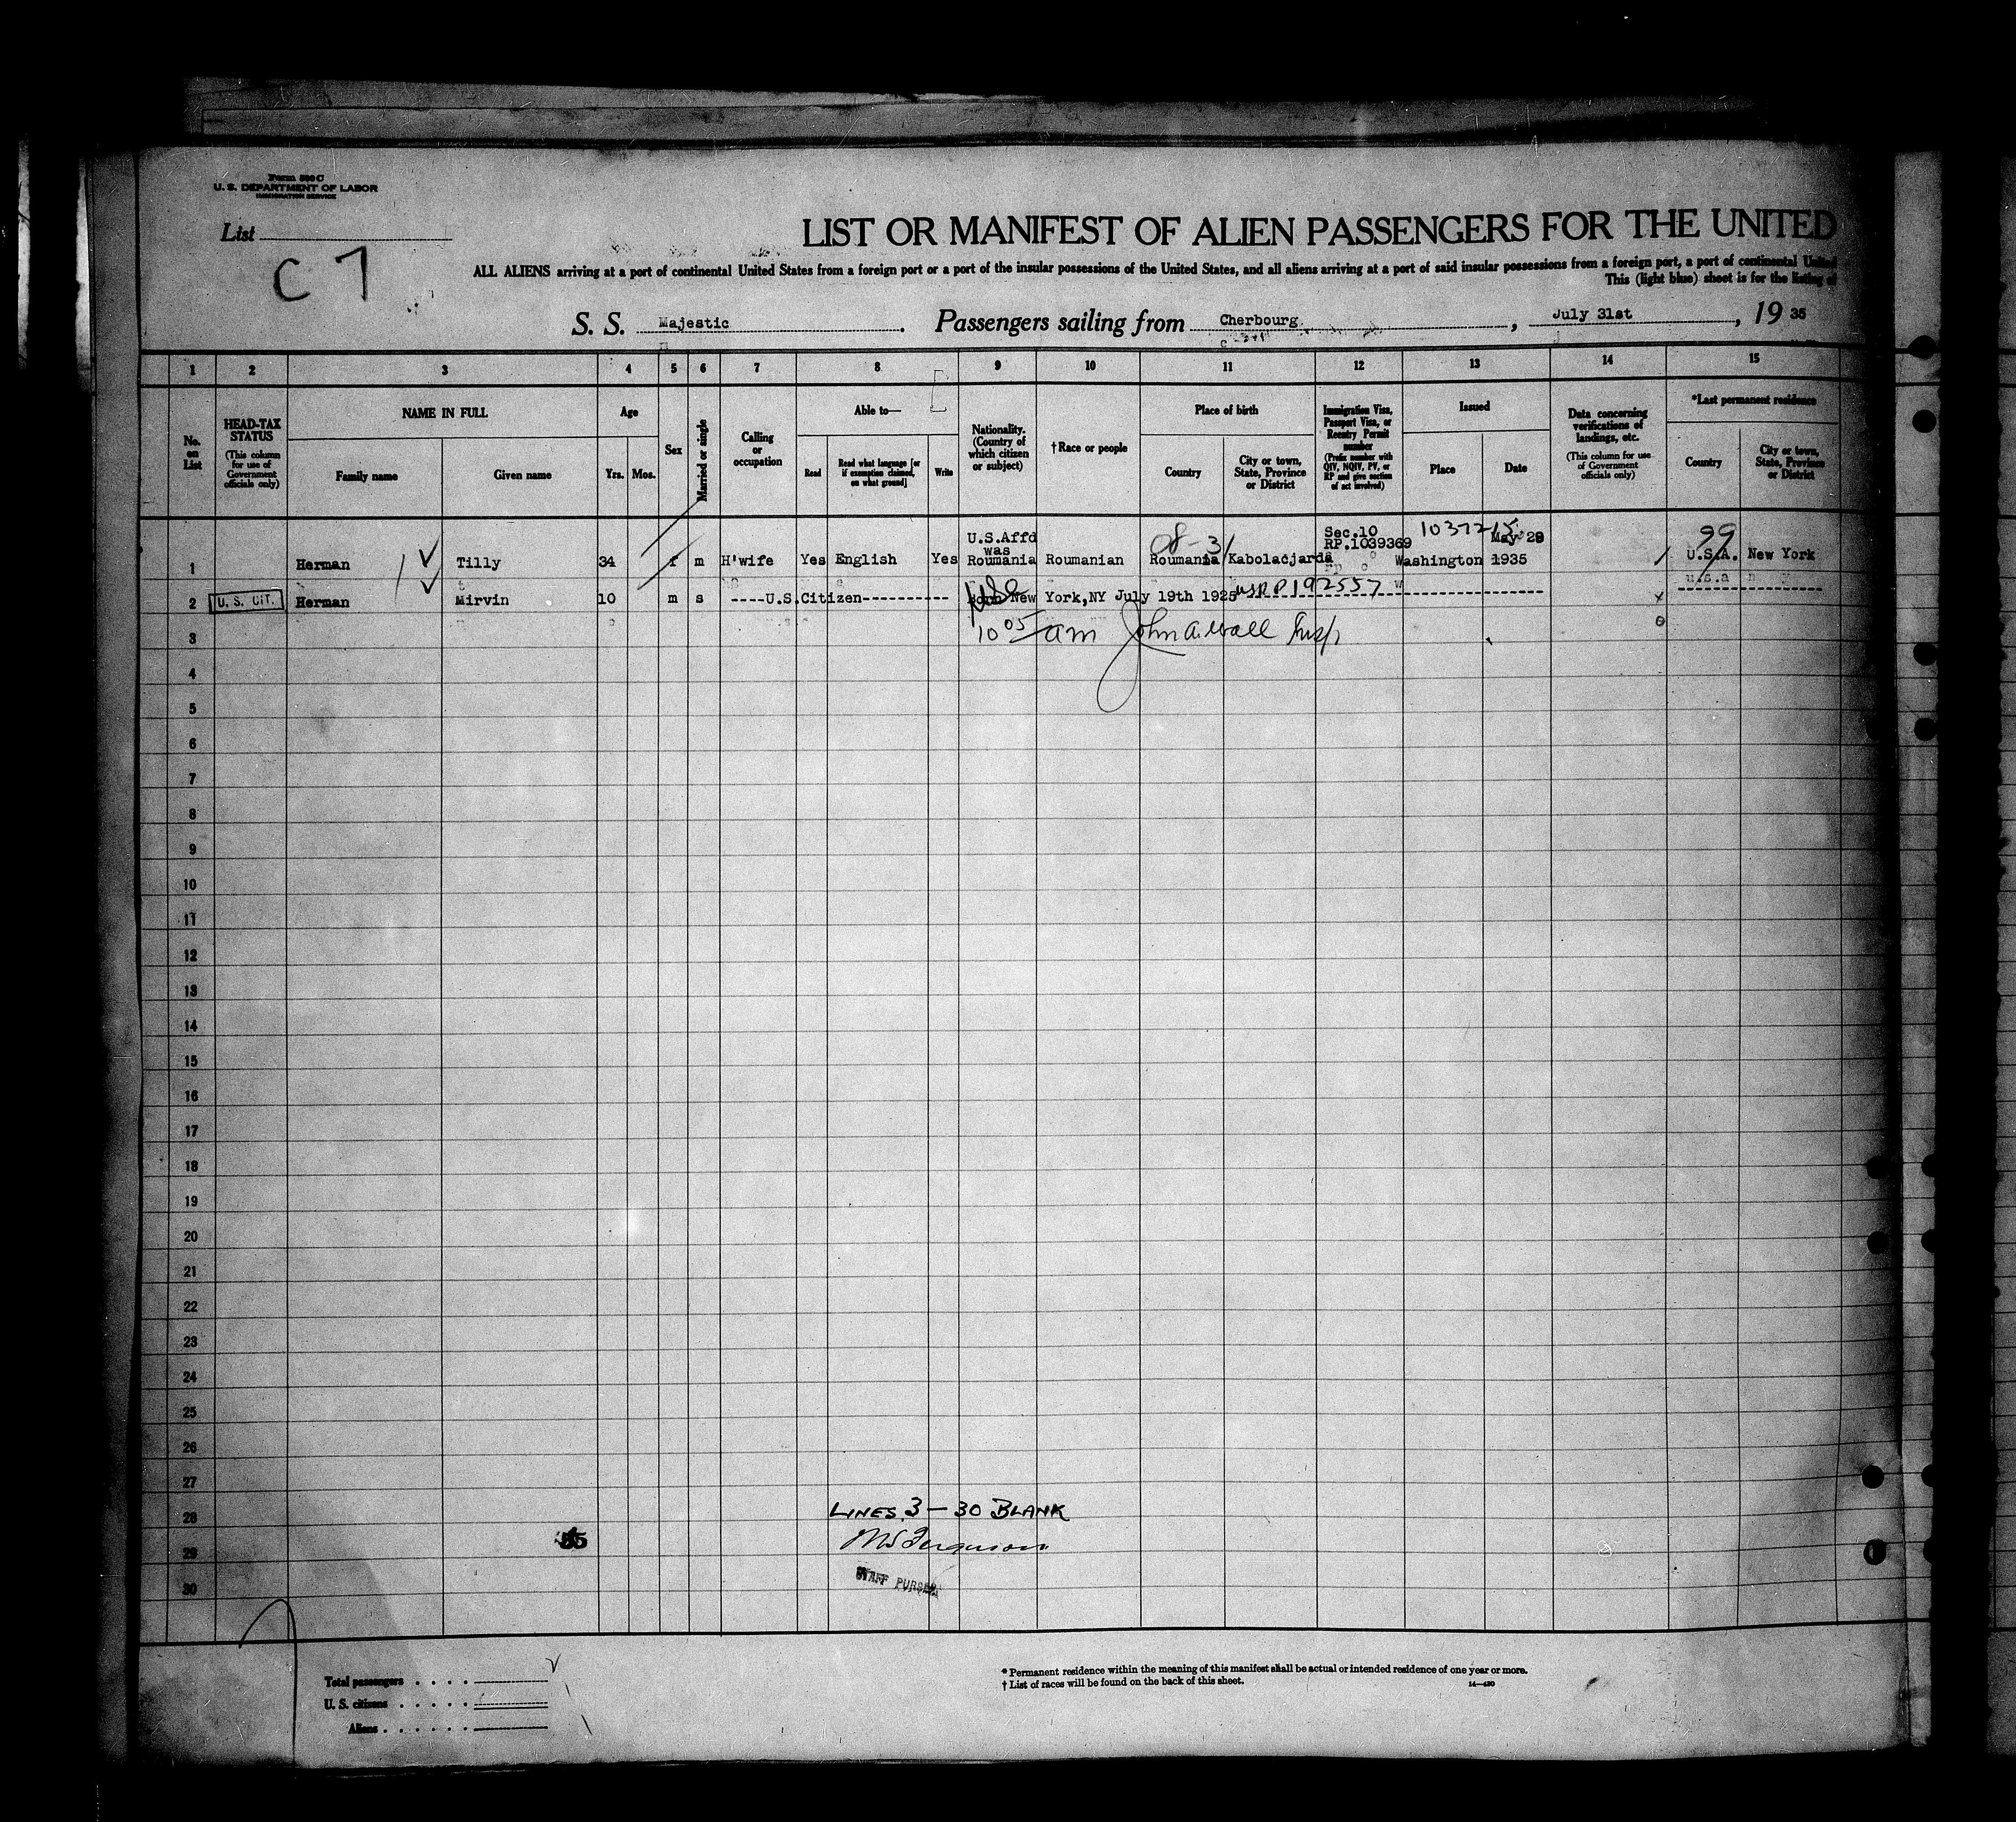 Form 500 C
U. S. DEPARTMENT OF LABOR
IMMIGRATION SERVICE
List
C 7
LIST OR MANIFEST OF ALIEN PASSENGERS FOR THE UNITED
ALL ALIENS arriving at a port of continental United States from a foreign port or a port of the insular possessions of the United States, and all aliens arriving at a port of said insular possessions from a foreign port, a port of continental United
This (light blue) sheet is for the listing of
S. S. Majestic . Passengers sailing from Cherbourg , July 31st , 19 35
1 2 3 4 5 6 7 8 9 10 11 12 13 14 15
No. on List
HEAD-TAX STATUS (This column for use of Government officials only)
NAME IN FULL
Family name Given name
Age
Yrs. Mos.
Sex
Married or single
Calling or occupation
Able to—
Read Read what language [or if exemption claimed, on what ground] Write
Nationality. (Country of which citizen or subject)
†Race or people
Place of birth
Country City or town, State, Province or District
Immigration Visa, Passport Visa, or Reentry Permit number (Prefix number with QIV, NQIV, PV, or RP and give section of act involved)
Issued
Place Date
Data concerning verifications of landings, etc. (This column for use of Government officials only)
*Last permanent residence
Country City or town, State, Province or District
U.S.Affd Sec.10
was 08-31 RP.1039369 May 29 99
1 Herman Tilly 34 f m H'wife Yes English Yes Roumania Roumanian Roumania Kabolacjarda Washington 1935 U.S.A. New York
2 U. S. CIT. Herman Mirvin 10 m s ----U.S.Citizen---------- New York,NY July 19th 1925 USPP 192557
3 10 05 am John A. Wall Insp
4
5
6
7
8
9
10
11
12
13
14
15
16
17
18
19
20
21
22
23
24
25
26
27
28 LINES 3 — 30 BLANK
29 Ferguson
30 STAFF PURSER
Total passengers . . . .
U. S. citizens . . . . .
Aliens . . . . . .
* Permanent residence within the meaning of this manifest shall be actual or intended residence of one year or more.
† List of races will be found on the back of this sheet. 14—430